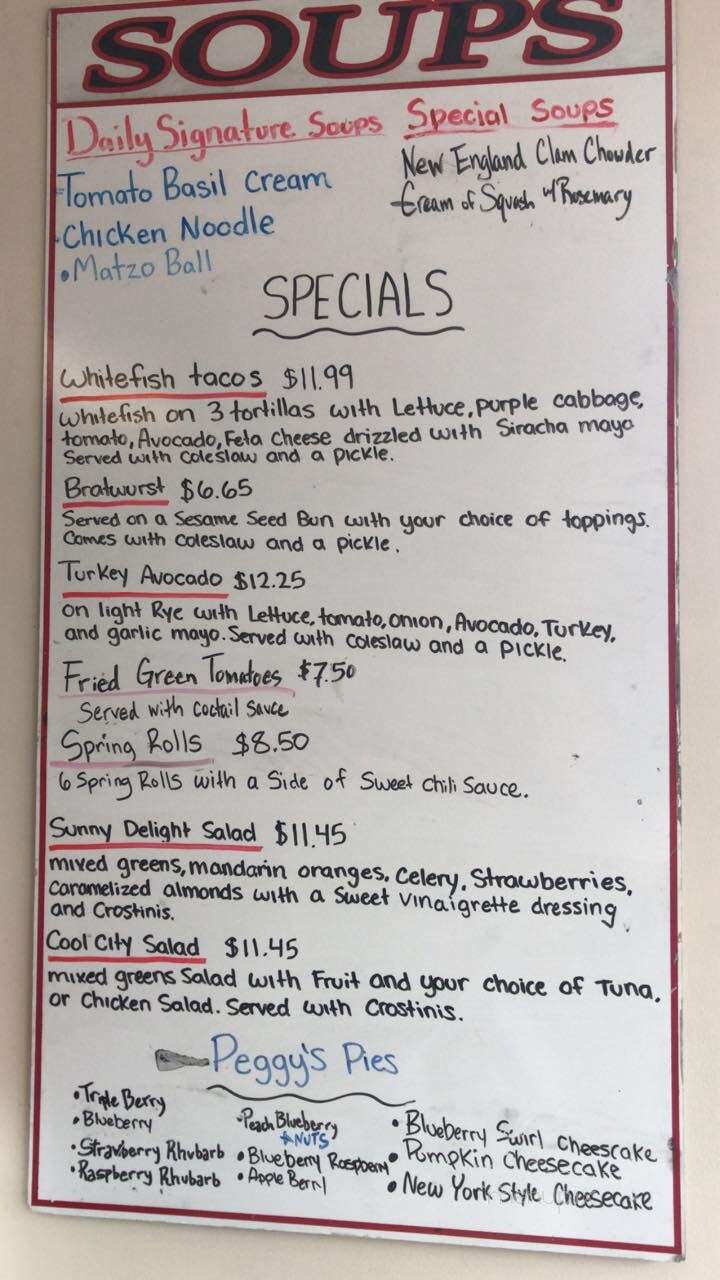 SOUPS
Daily Signature Soups
Tomato Basil Cream
Chicken Noodle
• Matzo Ball
Special Soups
New England Clam Chowder
Cream of Squash w/ Rosemary
SPECIALS
Whitefish tacos $11.99
Whitefish on 3 tortillas with Lettuce, purple cabbage,
tomato, Avocado, Feta Cheese drizzled with Siracha mayo
Served with Coleslaw and a pickle.
Bratwurst $6.65
Served on a Sesame Seed Bun with your choice of toppings.
Comes with Coleslaw and a pickle.
Turkey Avocado $12.25
on light Rye with Lettuce, tomato, onion, Avocado, Turkey,
and garlic mayo. Served with Coleslaw and a Pickle.
Fried Green Tomatoes $7.50
Served with Coctail Sauce
Spring Rolls $8.50
6 Spring Rolls with a Side of Sweet Chili Sauce.
Sunny Delight Salad $11.45
mixed greens, mandarin oranges, Celery, Strawberries,
Caramelized almonds with a Sweet Vinaigrette dressing
and Crostinis.
Cool City Salad $11.45
mixed greens Salad with Fruit and your choice of Tuna,
or Chicken Salad. Served with Crostinis.
Peggy's Pies
• Triple Berry
• Blueberry
• Strawberry Rhubarb
• Raspberry Rhubarb
• Peach Blueberry
* NUTS
• Blueberry Raspberry
• Apple Berry
• Blueberry Swirl Cheescake
• Pumpkin Cheesecake
• New York Style Cheesecake